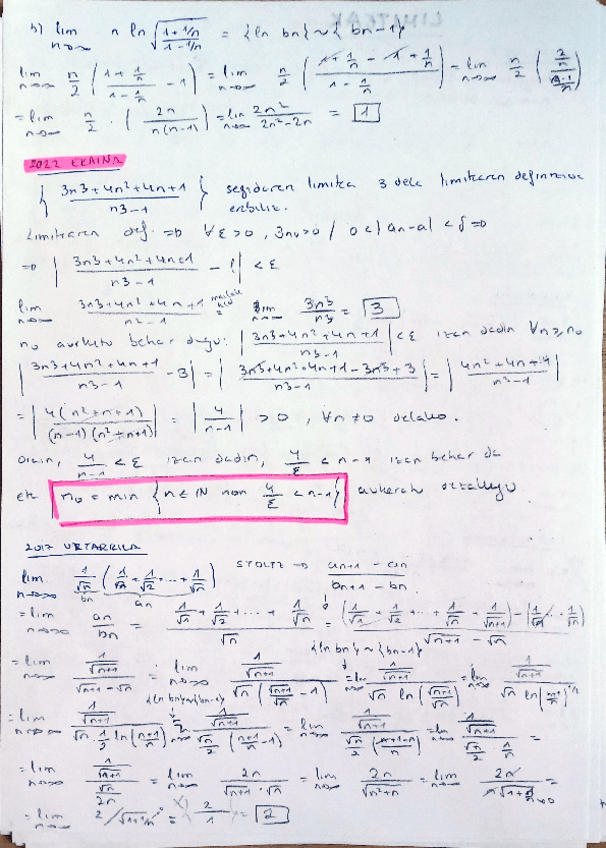 h) lim n→∞ n ln √((1+1/n)/(1-1/n)) = {ln bn} ~ {bn-1}
lim n→∞ n/2 ((1+1/n)/(1-1/n) - 1) = lim n→∞ n/2 ((1+1/n-1+1/n)/(1-1/n)) = lim n→∞ n/2 ((2/n)/((n-1)/n))
= lim n→∞ n/2 · (2n/(n(n-1))) = lim n→∞ 2n²/(2n²-2n) = 1
2022 EKAINA
{(3n³+4n²+4n+1)/(n³-1)} segidaren limitea 3 dela limitearen definizioa
erabiliz.
Limitearen def. ⇒ ∀ε>0, ∃n₀>0 / 0<|an-a|<δ ⇒
⇒ |(3n³+4n²+4n+1)/(n³-1) - l| < ε
lim n→∞ (3n³+4n²+4n+1)/(n³-1) lim n→∞ 3n³/n³ = 3
n₀ aurkitu behar dugu: |(3n³+4n²+4n+1)/(n³-1)| < ε izan dadin ∀n≥n₀
|(3n³+4n²+4n+1)/(n³-1) - 3| = |(3n³+4n²+4n+1-3n³+3)/(n³-1)| = |(4n²+4n+4)/(n³-1)|
= |4(n²+n+1)/((n-1)(n²+n+1))| = |4/(n-1)| > 0, ∀n≠0 delako.
Orain, 4/(n-1) < ε izan dadin, 4/ε < n-1 izan behar da
eta n₀ = min {n∈ℕ non 4/ε < n-1} aukeratu dezakegu
2017 URTARRILA
lim n→∞ 1/√n (1/√1 + 1/√2 + ... + 1/√n) STOLTZ → (an+1 - an)/(bn+1 - bn)
bn an
= lim n→∞ an/bn = (1/√1 + 1/√2 + ... + 1/√n)/√n = ((1/√1 + 1/√2 + ... + 1/√n + 1/√(n+1)) - (1/√1 ... 1/√n))/(√(n+1) - √n)
{ln bn} ~ {bn-1}
= lim n→∞ (1/√(n+1))/(√(n+1)-√n) = lim n→∞ (1/√(n+1))/(√n(√(n+1)/√n - 1)) = lim n→∞ (1/√(n+1))/(√n ln(√(n+1)/√n)) = lim n→∞ (1/√(n+1))/(√n ln((n+1)/n)^(1/2))
{ln bn} ~ {bn-1}
= lim n→∞ (1/√(n+1))/(√n · 1/2 ln((n+1)/n)) = lim n→∞ (1/√(n+1))/(√n/2 ((n+1)/n - 1)) = lim n→∞ (1/√(n+1))/(√n/2 ((n+1-n)/n)) = lim n→∞ (1/√(n+1))/(√n/2 · 1/n) =
= lim n→∞ (1/√(n+1))/(√n/2n) = lim n→∞ 2n/(√(n+1)·√n) = lim n→∞ 2n/√(n²+n) = lim n→∞ 2n/(n√(1+1/n)) =
= lim n→∞ 2/√(1+1/n) = 2/1 = 2